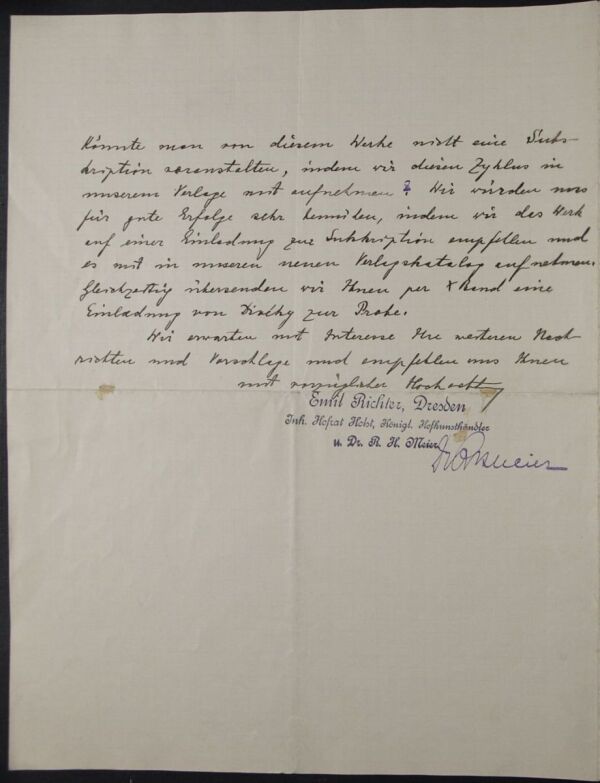 Könnte man von diesem Werke nicht eine Subs-
kription veranstalten, indem wir diesen Zyklus in
unserem Verlage mit aufnehmen? Wir würden uns
für gute Erfolge sehr bemühen, indem wir das Werk
auf einer Einladung zur Subskription empfehlen und
es mit in unseren neuen Verlagskatalog aufnehmen.
Gleichzeitig übersenden wir Ihnen per X Band eine
Einladung von zur Probe.
Wir erwarten mit Interesse Ihre weiteren Nach-
richten und Vorschläge und empfehlen uns Ihnen
mit vorzüglicher Hochacht
Emil Richter, Dresden
Inh. Hofrat Holst, Königl. Hofkunsthändler
u. Dr. R. H. Meier